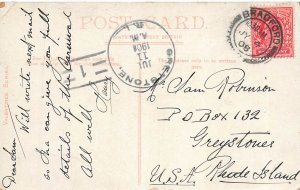 POST CARD
Dear Sam Will write next mail
so I can give you full
details of the Carnival
All well
Harry
GREYSTONE
JUL
11
A.M.
1908
R.I.
1
BRADFORD
JY
08
Mr Sam Robinson
PO Box 132
Greystones
Rhode Island
U.S.A.